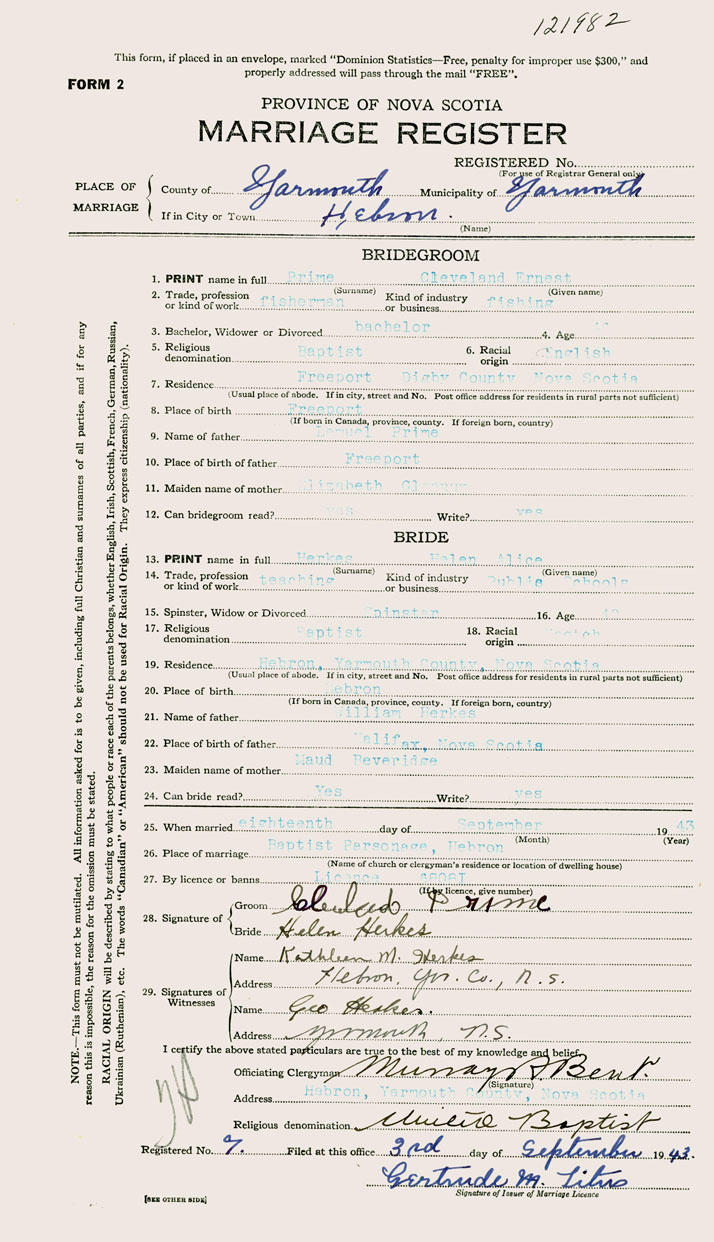 121982
This form, if placed in an envelope, marked "Dominion Statistics—Free, penalty for improper use $300," and
properly addressed will pass through the mail "FREE".
FORM 2
PROVINCE OF NOVA SCOTIA
MARRIAGE REGISTER
REGISTERED No.
(For use of Registrar General only)
PLACE OF MARRIAGE
County of Yarmouth Municipality of Yarmouth
If in City or Town Hebron.
(Name)
BRIDEGROOM
1. PRINT name in full Prime Cleveland Ernest
(Surname) (Given name)
2. Trade, profession or kind of work fisherman Kind of industry or business fishing
3. Bachelor, Widower or Divorced bachelor 4. Age
5. Religious denomination Baptist 6. Racial origin English
7. Residence Freeport Digby County Nova Scotia
(Usual place of abode. If in city, street and No. Post office address for residents in rural parts not sufficient)
8. Place of birth Freeport
(If born in Canada, province, county. If foreign born, country)
9. Name of father Lemuel Prime
10. Place of birth of father Freeport
11. Maiden name of mother Elizabeth
12. Can bridegroom read? yes Write? yes
BRIDE
13. PRINT name in full Herkes Helen Alice
(Surname) (Given name)
14. Trade, profession or kind of work teaching Kind of industry or business Public Schools
15. Spinster, Widow or Divorced Spinster 16. Age
17. Religious denomination Baptist 18. Racial origin
19. Residence Hebron, Yarmouth County, Nova Scotia
(Usual place of abode. If in city, street and No. Post office address for residents in rural parts not sufficient)
20. Place of birth Hebron
(If born in Canada, province, county. If foreign born, country)
21. Name of father William Herkes
22. Place of birth of father Halifax, Nova Scotia
23. Maiden name of mother Maud Beveridge
24. Can bride read? Yes Write? yes
25. When married eighteenth day of September 1943
(Month) (Year)
26. Place of marriage Baptist Parsonage, Hebron
(Name of church or clergyman's residence or location of dwelling house)
27. By licence or banns Licence
(If by licence, give number)
28. Signature of
Groom Prime
Bride Helen Herkes
29. Signatures of Witnesses
Name Kathleen M. Herkes
Address Hebron, Yar. Co., N.S.
Name Geo Herkes.
Address Yarmouth, N.S.
I certify the above stated particulars are true to the best of my knowledge and belief.
Officiating Clergyman Murray Bent.
(Signature)
Address Hebron, Yarmouth County, Nova Scotia
Religious denomination United Baptist
Registered No. 7. Filed at this office 3rd day of September 1943.
Gertrude M. Titus
Signature of Issuer of Marriage Licence
[SEE OTHER SIDE]
NOTE.—This form must not be mutilated. All information asked for is to be given, including full Christian and surnames of all parties, and if for any
reason this is impossible, the reason for the omission must be stated.
RACIAL ORIGIN will be described by stating to what people or race each of the parents belongs, whether English, Irish, Scottish, French, German, Russian,
Ukrainian (Ruthenian), etc. The words "Canadian" or "American" should not be used for Racial Origin. They express citizenship (nationality).